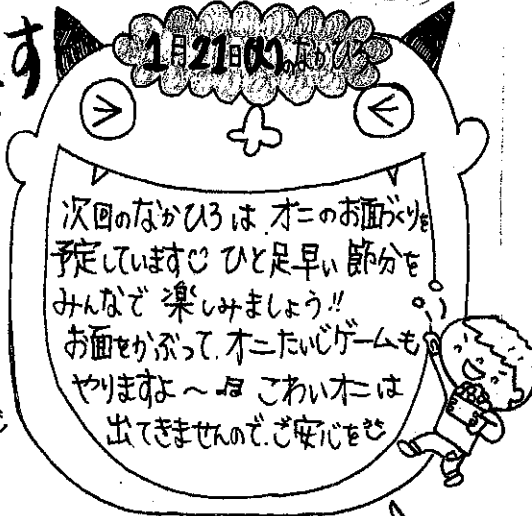 す
1月21日(火)のなかひろ
次回のなかひろは、オニのお面づくりを
予定しています。ひと足早い節分を
みんなで楽しみましょう!!
お面をかぶって、オニたいじゲームも
やりますよ〜♫ こわいオニは
出てきませんので、ご安心を